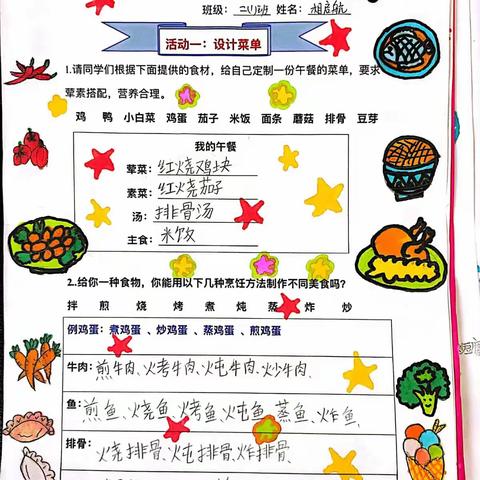 班级：二(1)班 姓名：胡启航
活动一：设计菜单
1.请同学们根据下面提供的食材，给自己定制一份午餐的菜单，要求
荤素搭配，营养合理。
鸡 鸭 小白菜 鸡蛋 茄子 米饭 面条 蘑菇 排骨 豆芽
我的午餐
荤菜：红烧鸡块
素菜：红烧茄子
汤：排骨汤
主食：米饭
2.给你一种食物，你能用以下几种烹饪方法制作不同美食吗？
拌 煎 烧 烤 煮 炖 蒸 炸 炒
例鸡蛋：煮鸡蛋、炒鸡蛋、蒸鸡蛋、煎鸡蛋
牛肉：煎牛肉、烤牛肉、炖牛肉、炒牛肉、
鱼：煎鱼、烧鱼、烤鱼、炖鱼、蒸鱼、炸鱼、
排骨：烧排骨、炖排骨、炸排骨、